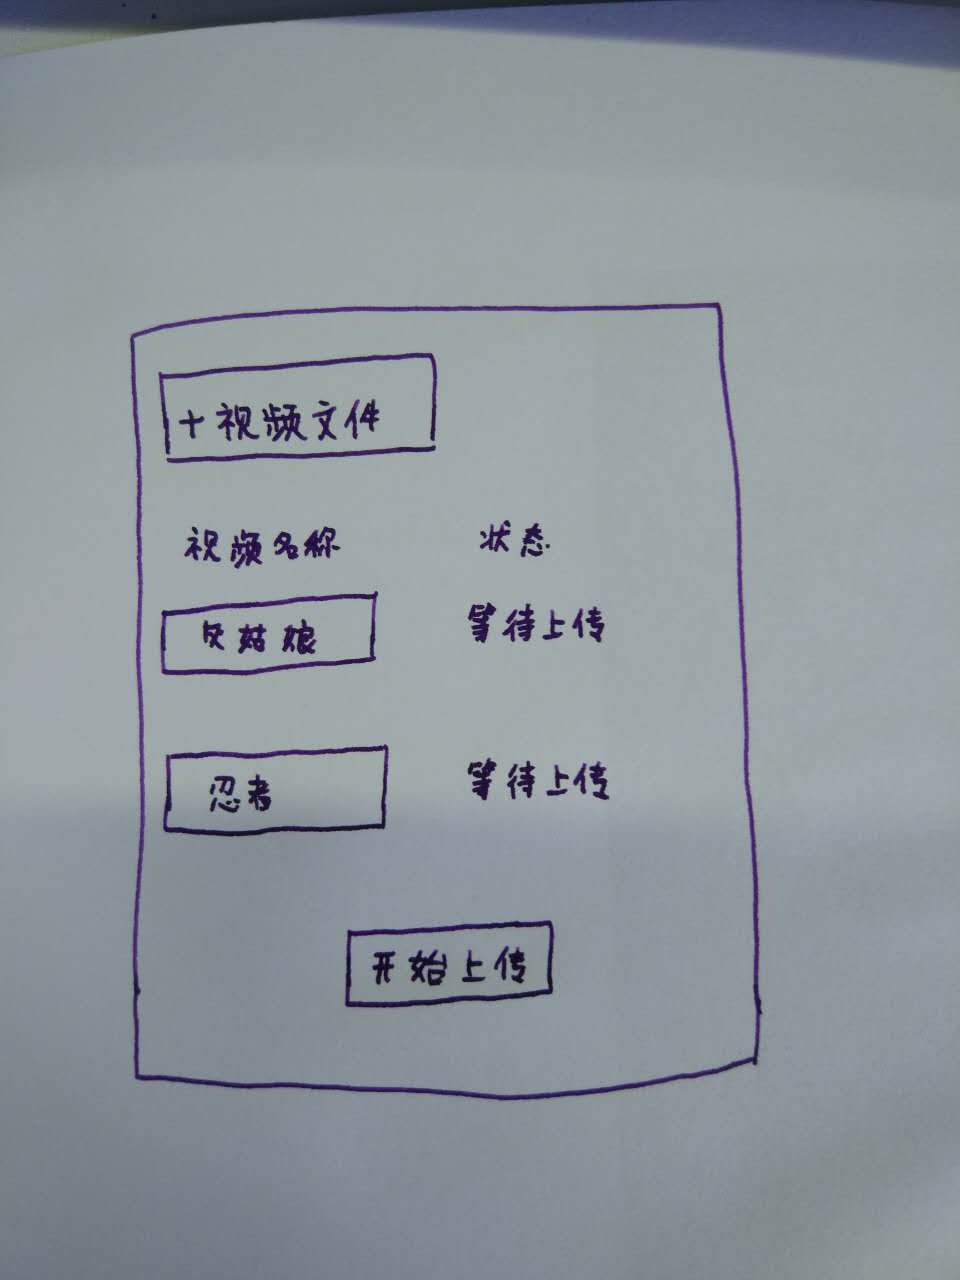 +视频文件
视频名称 状态
灰姑娘 等待上传
忍者 等待上传
开始上传